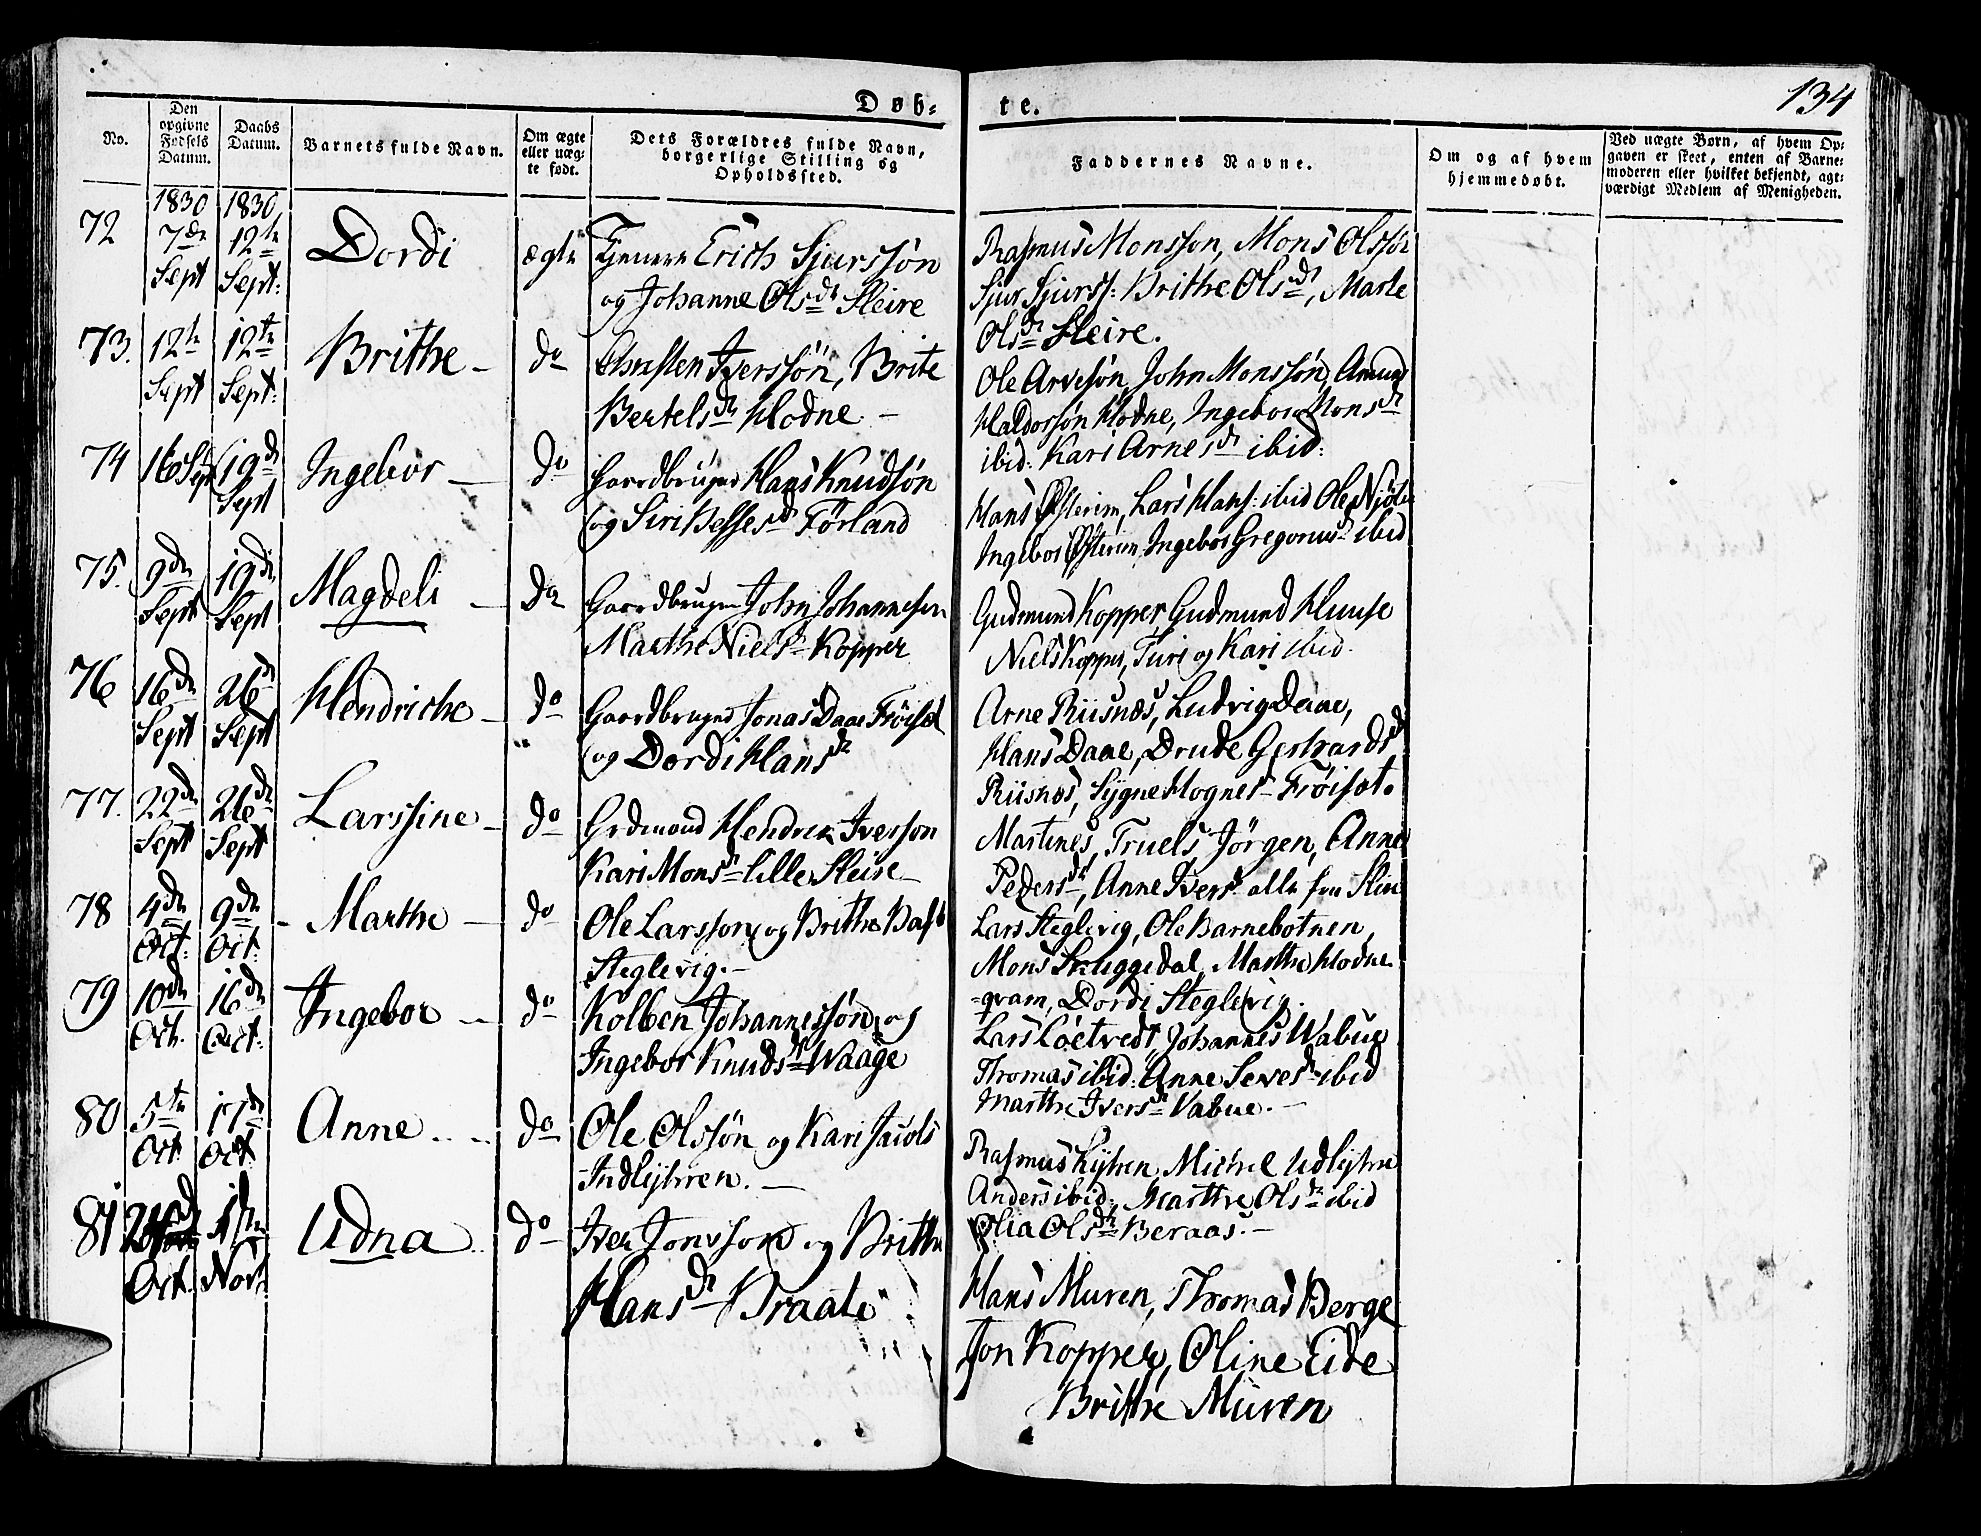 134
Døb- te.
No.
Den opgivne Fødsels Datum.
Daabs Datum.
Barnets fulde Navn.
Om ægte eller uæg- te født.
Dets Forældres fulde Navn, borgerlige Stilling og Opholdssted.
Faddernes Navne.
Om og af hvem hjemmedøbt.
Ved uægte Børn, af hvem Op- gaven er skeet, enten af Barne- moderen eller hvilket bekjendt, agt- værdigt Medlem af Menigheden.
1830 1830
72 7de Sept 12te Sept: Dordi ægte
Tjenere Erich Sjurssøn
og Johanne Olsdr Sleire
Rasmus Monsson, Mons Olssøn
Sjur Sjurss: Brithe Olsdr, Marte
Olsdr Sleire.
73. 12te Sept 12te Sept: Brithe do
Christen Iverssøn, Brite
Bertelsdr Hodne
Ole Arvesøn, John Monssøn, Amund
Haldorssøn Hodne, Ingebor Monsdr
ibid: Kari Arnesdr ibid:
74 16 Sept 19de Sept Ingebor do
Gaardbruger Hans Knudsøn
og Siri Dr Førland
Hans Østerim, Lars Hans: ibid Ole
Ingebor Østerim, Ingebor Gregorius ibid
75. 9de Sept 19de Sept Magdeli do
Gaardbruger John Johannesen
Marthe Niels Kopper
Gudmund Kopper, Gudmund Huuse
Niels Kopper, Turi og Kari ibid.
76 16de Sept 26de Sept Hendriche do
Gaardbruger Jonas Daae Frøiset
og Dordi Hansdr
Arne Riisnæs, Ludvig Daae,
Hans Daae, Drude Gerhardsdr
Riisnæs, Sygne Hognes Frøiset.
77. 22de Sept 26de Sept Larssine do
Hendrik Iverson
Kari Monsdr Lille Sleire
Martines, Truels Jørgen, Anne
Pedersdr, Anne Iversdr alle fra
78 4de Oct: 9de Oct: Marthe do
Ole Larsson og Brithe
Steglevig.
Lars Steglevig, Ole Barnebotnen,
Mons Skuggedal, Marthe Hodne
-qvam, Dordi Steglevig.
79 10de Oct. 16de Oct: Ingebor do
Kolben Johannessøn og
Ingebor Knudsdr Waage
Lars Løetvedt, Johannes Wabue
Thomas ibid: Anne dr ibid
Marthe Iversdr Vabue.
80 5te Oct 17de Oct: Anne do
Ole Olssøn og Kari Jacobs
Indlyhren.
Rasmus Lyhren, Michel Udlyhre
Anders ibid: Marthe Olsdr ibid
Olia Olsdr Beraas.
81 Oct. 1ste Nov: Udna do
Iver Jonsson og Brithe
Hansdr Braate
Hans Muren, Thomas Berge
Jon Kopper, Oline Eide
Brithe Muren